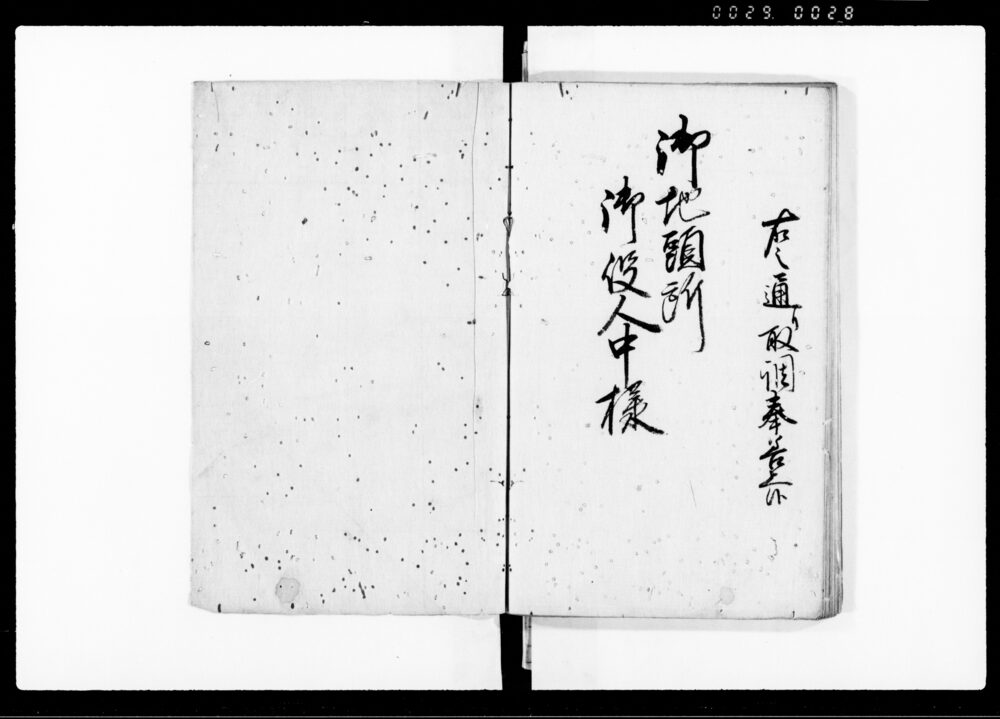 0029. 0028
右之通り取調奉差上候
御地頭所
御役人中様